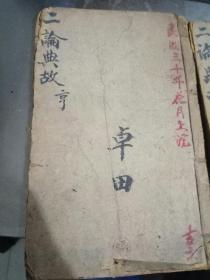 民國三十年花月上浣
二論典故 亨
卓田
二論